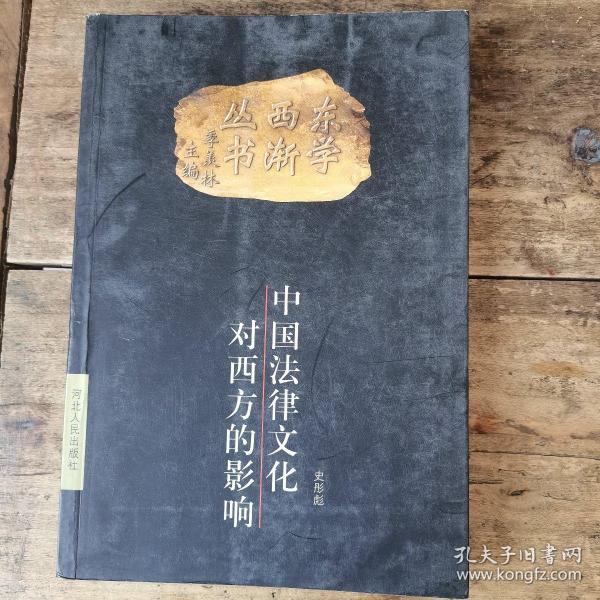 东学
西渐
丛书
季羡林
主编
中国法律文化
对西方的影响
史彤彪
河北人民出版社
孔夫子旧书网
www.kongfz.com